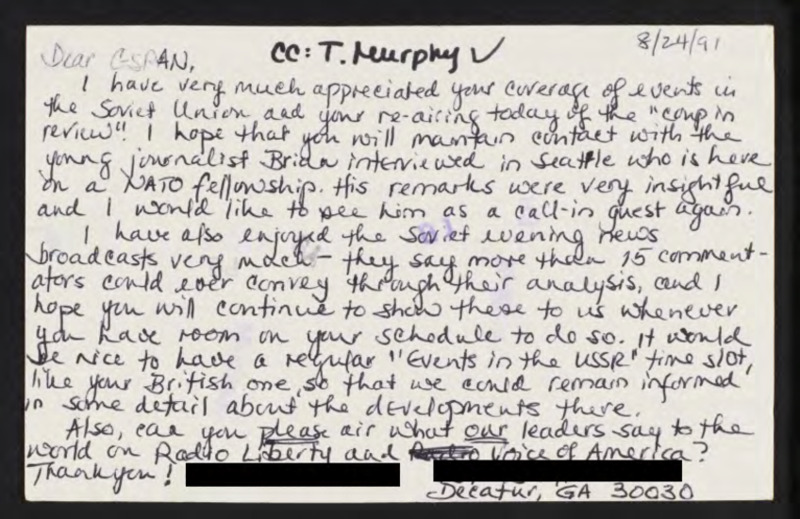 8/24/91
Dear C-SPAN,
CC: T. Murphy ✓
I have very much appreciated your coverage of events in
the Soviet Union and your re-airing today of the "coup in
review". I hope that you will maintain contact with the
young journalist Brian interviewed in Seattle who is here
on a NATO fellowship. His remarks were very insightful
and I would like to see him as a call-in guest again.
I have also enjoyed the Soviet evening news
broadcasts very much – they say more than 15 comment-
ators could ever convey through their analysis, and I
hope you will continue to show these to us whenever
you have room on your schedule to do so. It would
be nice to have a regular "Events in the USSR" time slot,
like your British one, so that we could remain informed
in some detail about the developments there.
Also, can you please air what our leaders say to the
world on Radio Liberty and Voice of America?
Thank you!
Decatur, GA 30030